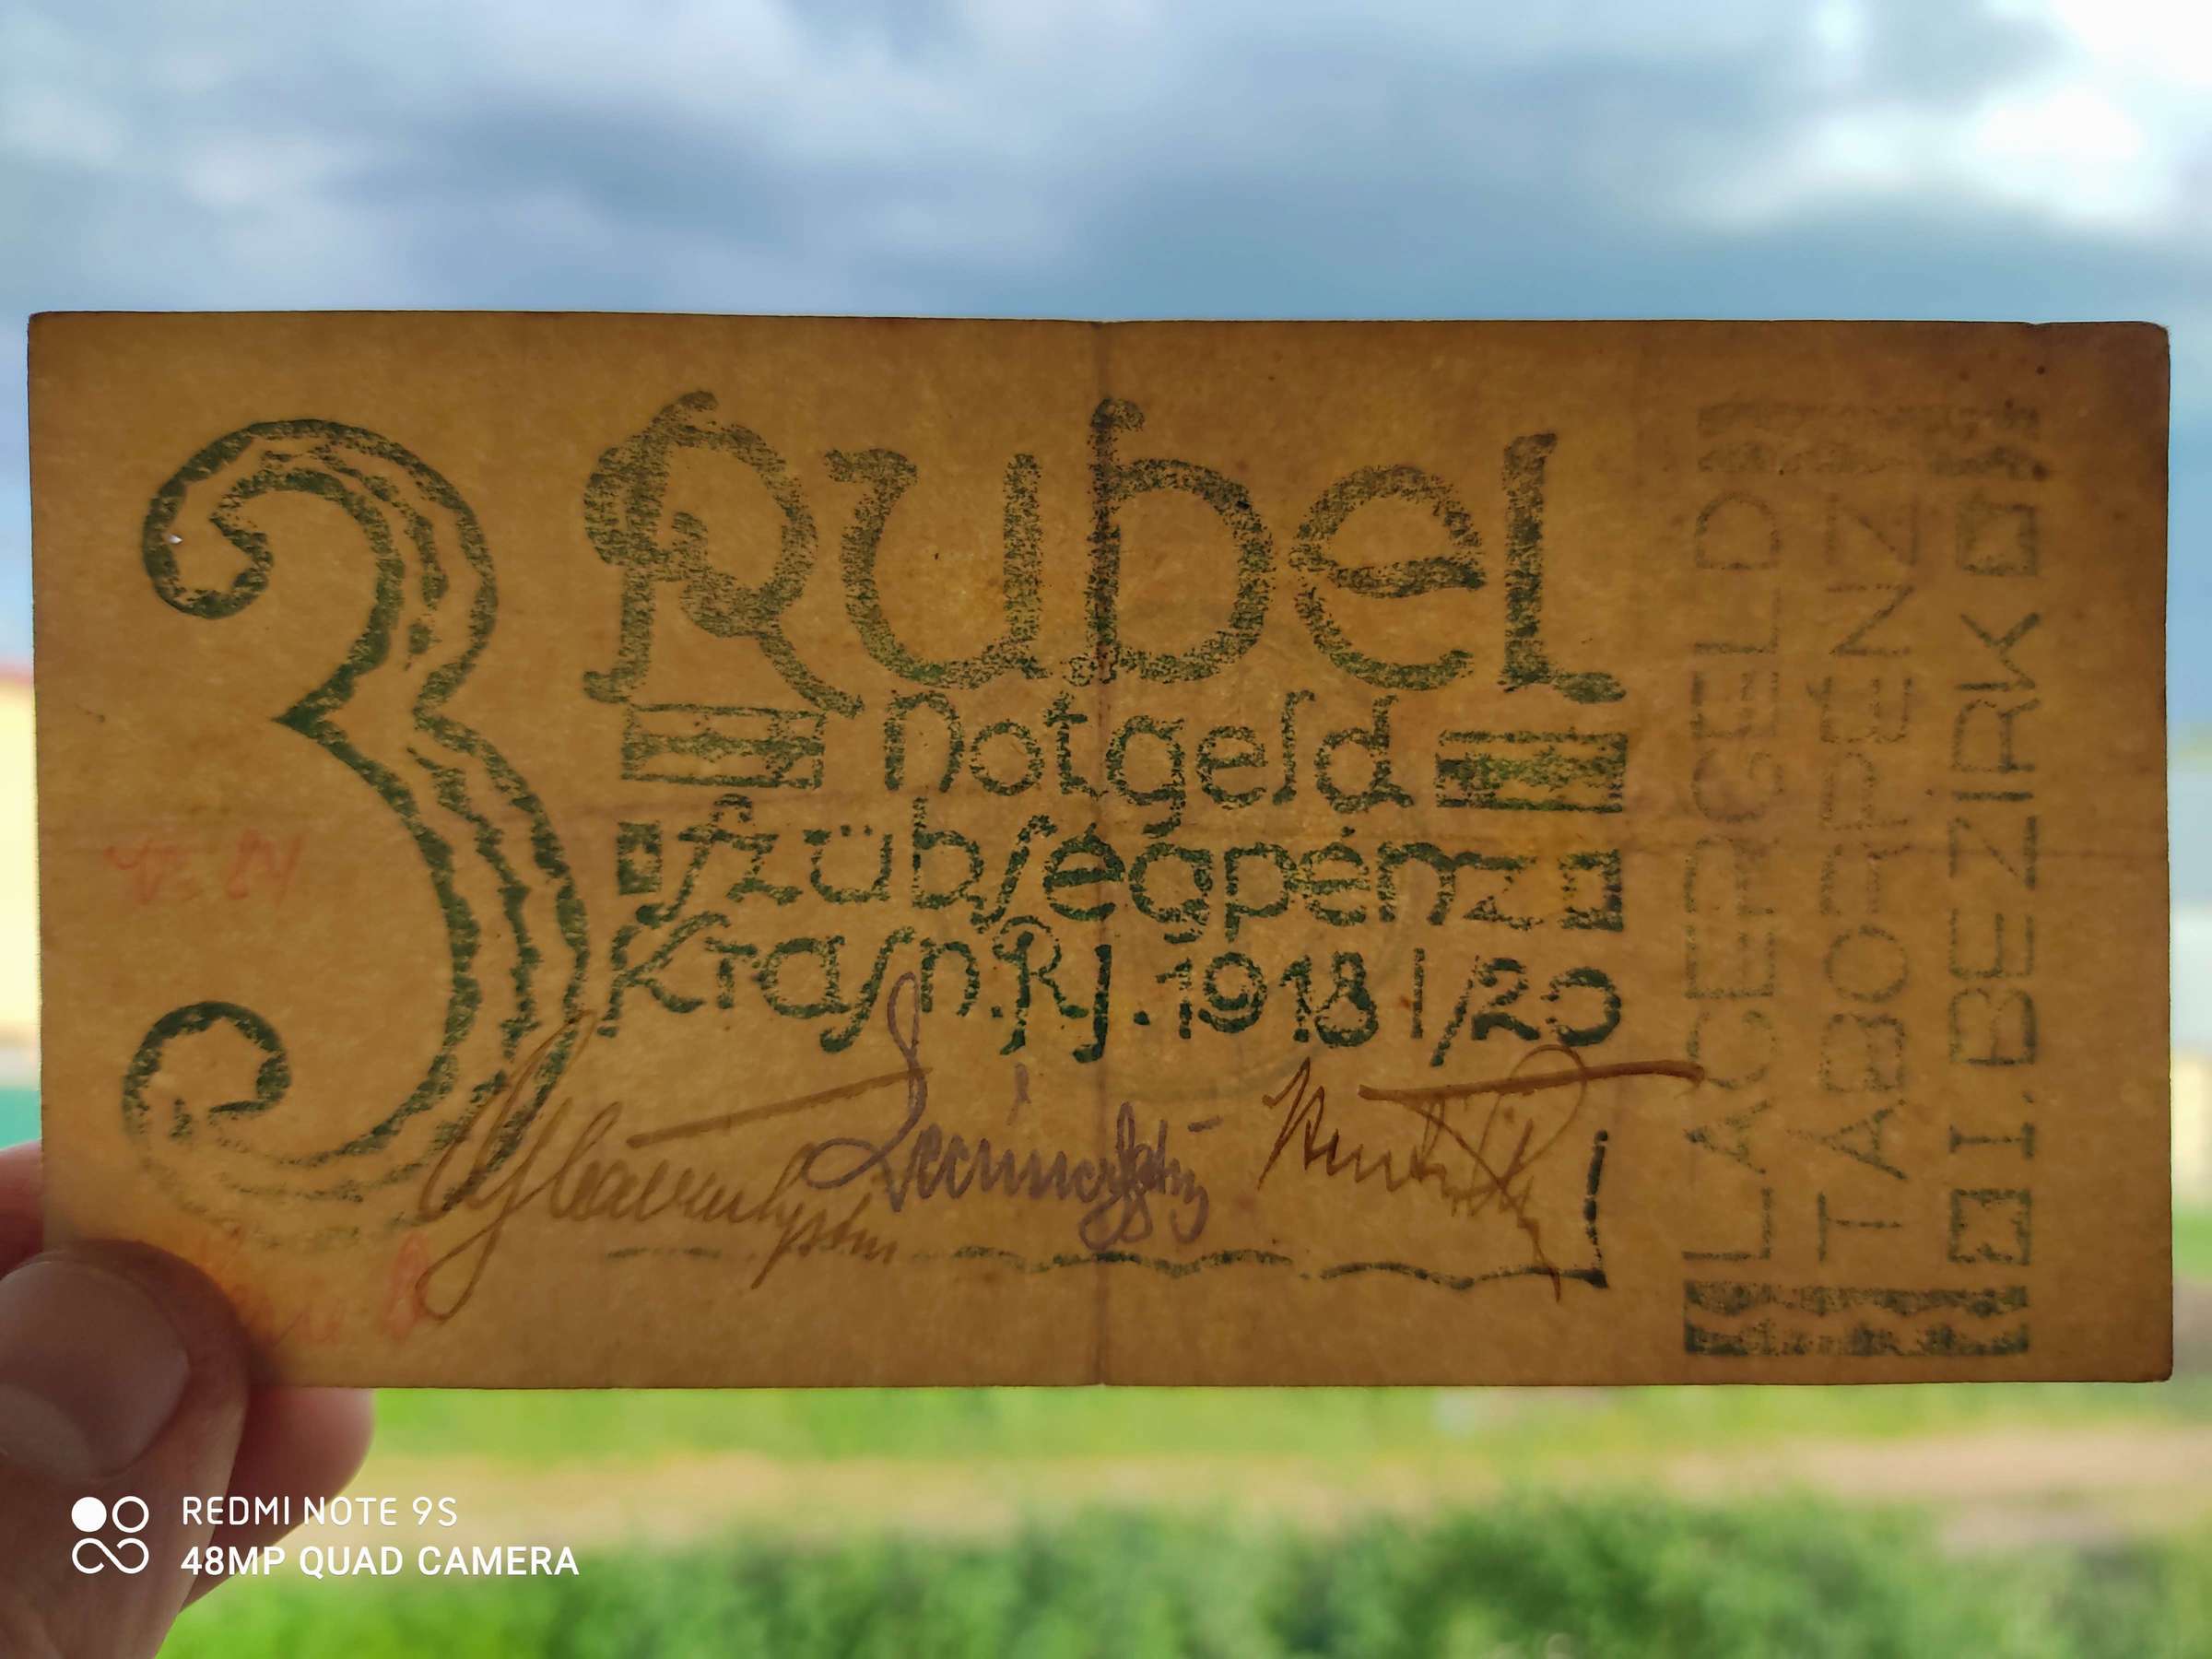 3 Rubel
Notgeld
szübségpénz
Krasn. Rj. 1918 1/20
LAGERGELD
TABORPÉNZ
I. BEZIRK
REDMI NOTE 9S
48MP QUAD CAMERA